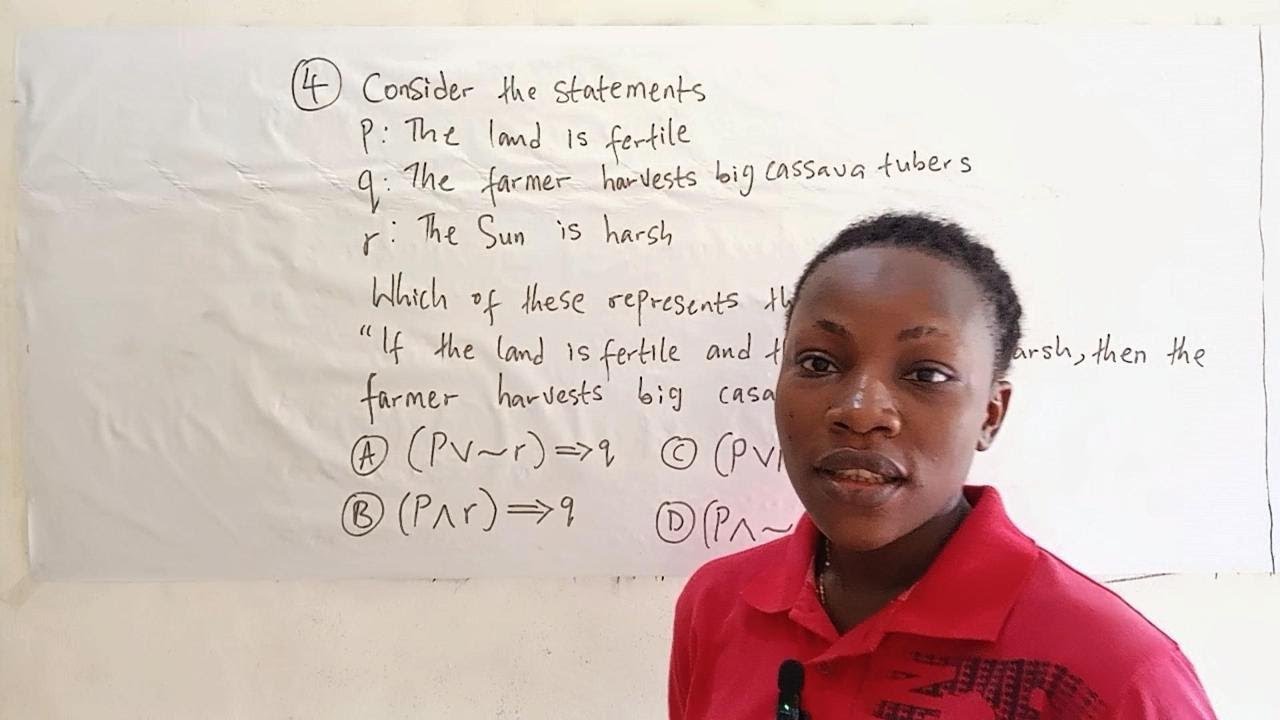 ④ Consider the statements
p: The land is fertile
q: The farmer harvests big cassava tubers
r: The Sun is harsh
Which of these represents
"If the land is fertile and , then the
farmer harvests big
Ⓐ (P∨~r)⇒q Ⓒ (P∨
Ⓑ (P∧r)⇒q Ⓓ (P∧~